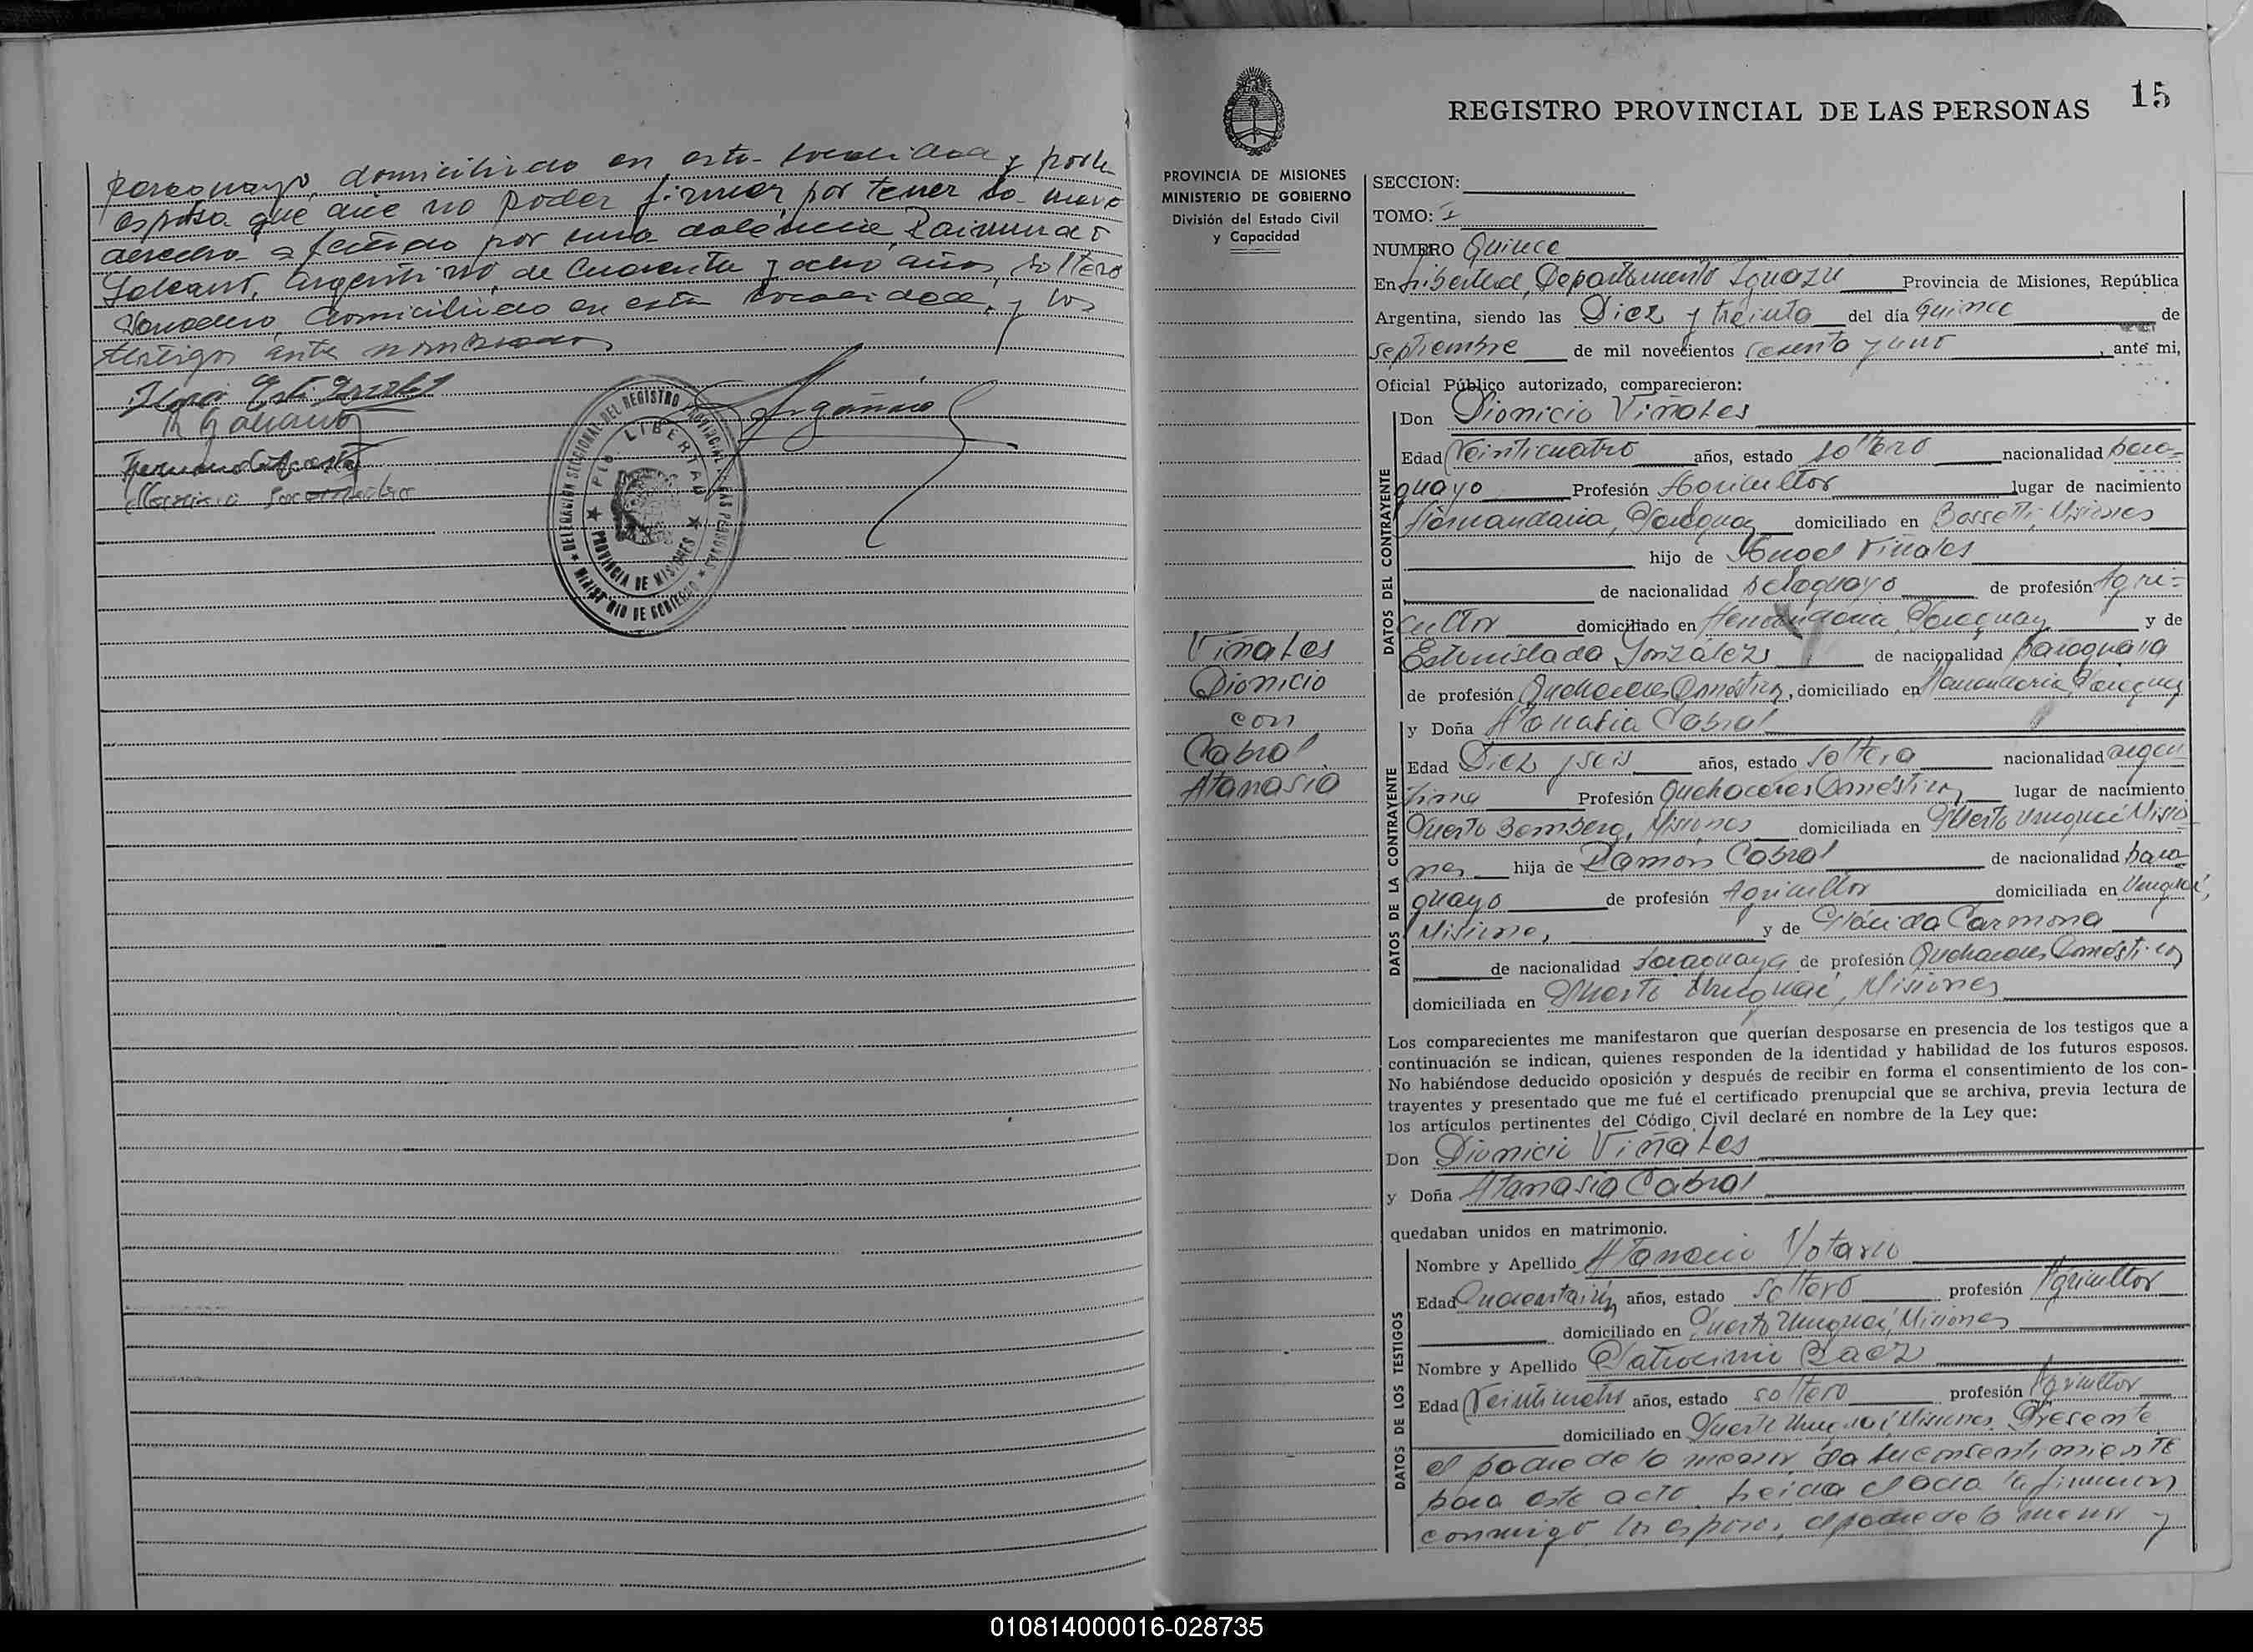 paraguayo, domiciliado en esta localidad y por la
esposa que dice no poder firmar por tener la mano
derecha afectada por una dolencia, Raimundo
Galeano, argentino, de cuarenta y ocho años, soltero
domiciliado en esta localidad, y los
testigos ante nombrados
R Galeano
DELEGACION SECCIONAL DEL REGISTRO PROVINCIAL DE LAS PERSONAS
PTO. LIBERTAD
PROVINCIA DE MISIONES
MINISTERIO DE GOBIERNO
15
REGISTRO PROVINCIAL DE LAS PERSONAS
PROVINCIA DE MISIONES
MINISTERIO DE GOBIERNO
División del Estado Civil
y Capacidad
Viñales
Dionicio
con
Cabral
Atanasia
SECCION:
TOMO: I
NUMERO Quince
En Libertad, Departamento Iguazu Provincia de Misiones, República
Argentina, siendo las Diez y treinta del día quince de
septiembre de mil novecientos sesenta y uno, ante mi,
Oficial Público autorizado, comparecieron:
DATOS DEL CONTRAYENTE
Don Dionicio Viñales
Edad Veinticuatro años, estado soltero nacionalidad para=
guayo Profesión Agricultor lugar de nacimiento
Hernandaria, Paraguay domiciliado en Bossetti, Misiones
hijo de Viñales
de nacionalidad paraguayo de profesión Agri=
cultor domiciliado en Hernandaria, Paraguay y de
Estanislada González de nacionalidad paraguaya
de profesión Quehaceres Domésticos, domiciliado en Hernandaria, Paraguay
DATOS DE LA CONTRAYENTE
y Doña Atanasia Cabral
Edad Diez y seis años, estado soltera nacionalidad argen
tina Profesión Quehaceres Domésticos lugar de nacimiento
Puerto Bemberg, Misiones domiciliada en Puerto Uruguaí Misio
nes hija de Ramón Cabral de nacionalidad para
guayo de profesión Agricultor domiciliada en Uruguaí,
Misiones, y de Plácida Carmona
de nacionalidad paraguaya de profesión Quehaceres Domésticos
domiciliada en Puerto Uruguaí, Misiones
Los comparecientes me manifestaron que querían desposarse en presencia de los testigos que a
continuación se indican, quienes responden de la identidad y habilidad de los futuros esposos.
No habiéndose deducido oposición y después de recibir en forma el consentimiento de los con-
trayentes y presentado que me fué el certificado prenupcial que se archiva, previa lectura de
los artículos pertinentes del Código Civil declaré en nombre de la Ley que:
Don Dionicio Viñales
y Doña Atanasia Cabral
quedaban unidos en matrimonio.
DATOS DE LOS TESTIGOS
Nombre y Apellido Atanacio
Edad Cuarentaiún años, estado soltero profesión Agricultor
domiciliado en Puerto Uruguaí, Misiones
Nombre y Apellido Patrocinio Baez
Edad Veinticuatro años, estado soltero profesión Agricultor
domiciliado en Puerto Uruguaí Misiones. Presente
el padre de la menor da su consentimiento
para este acto. Leída el acta la firman
conmigo los esposos, el padre de la menor y
010814000016-028735